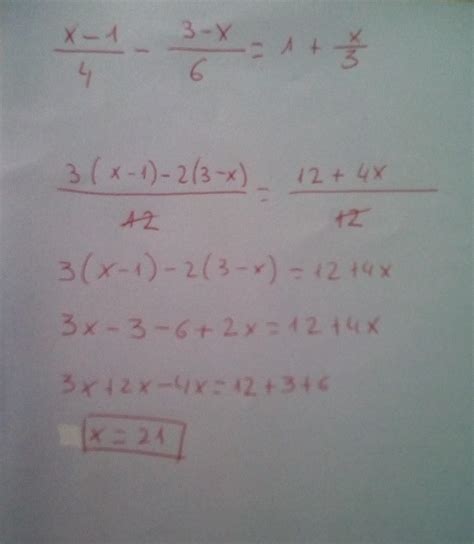 x-1/4 - 3-x/6 = 1 + x/3
3(x-1)-2(3-x)/12 = 12+4x/12
3(x-1)-2(3-x)=12+4x
3x-3-6+2x=12+4x
3x+2x-4x=12+3+6
x=21